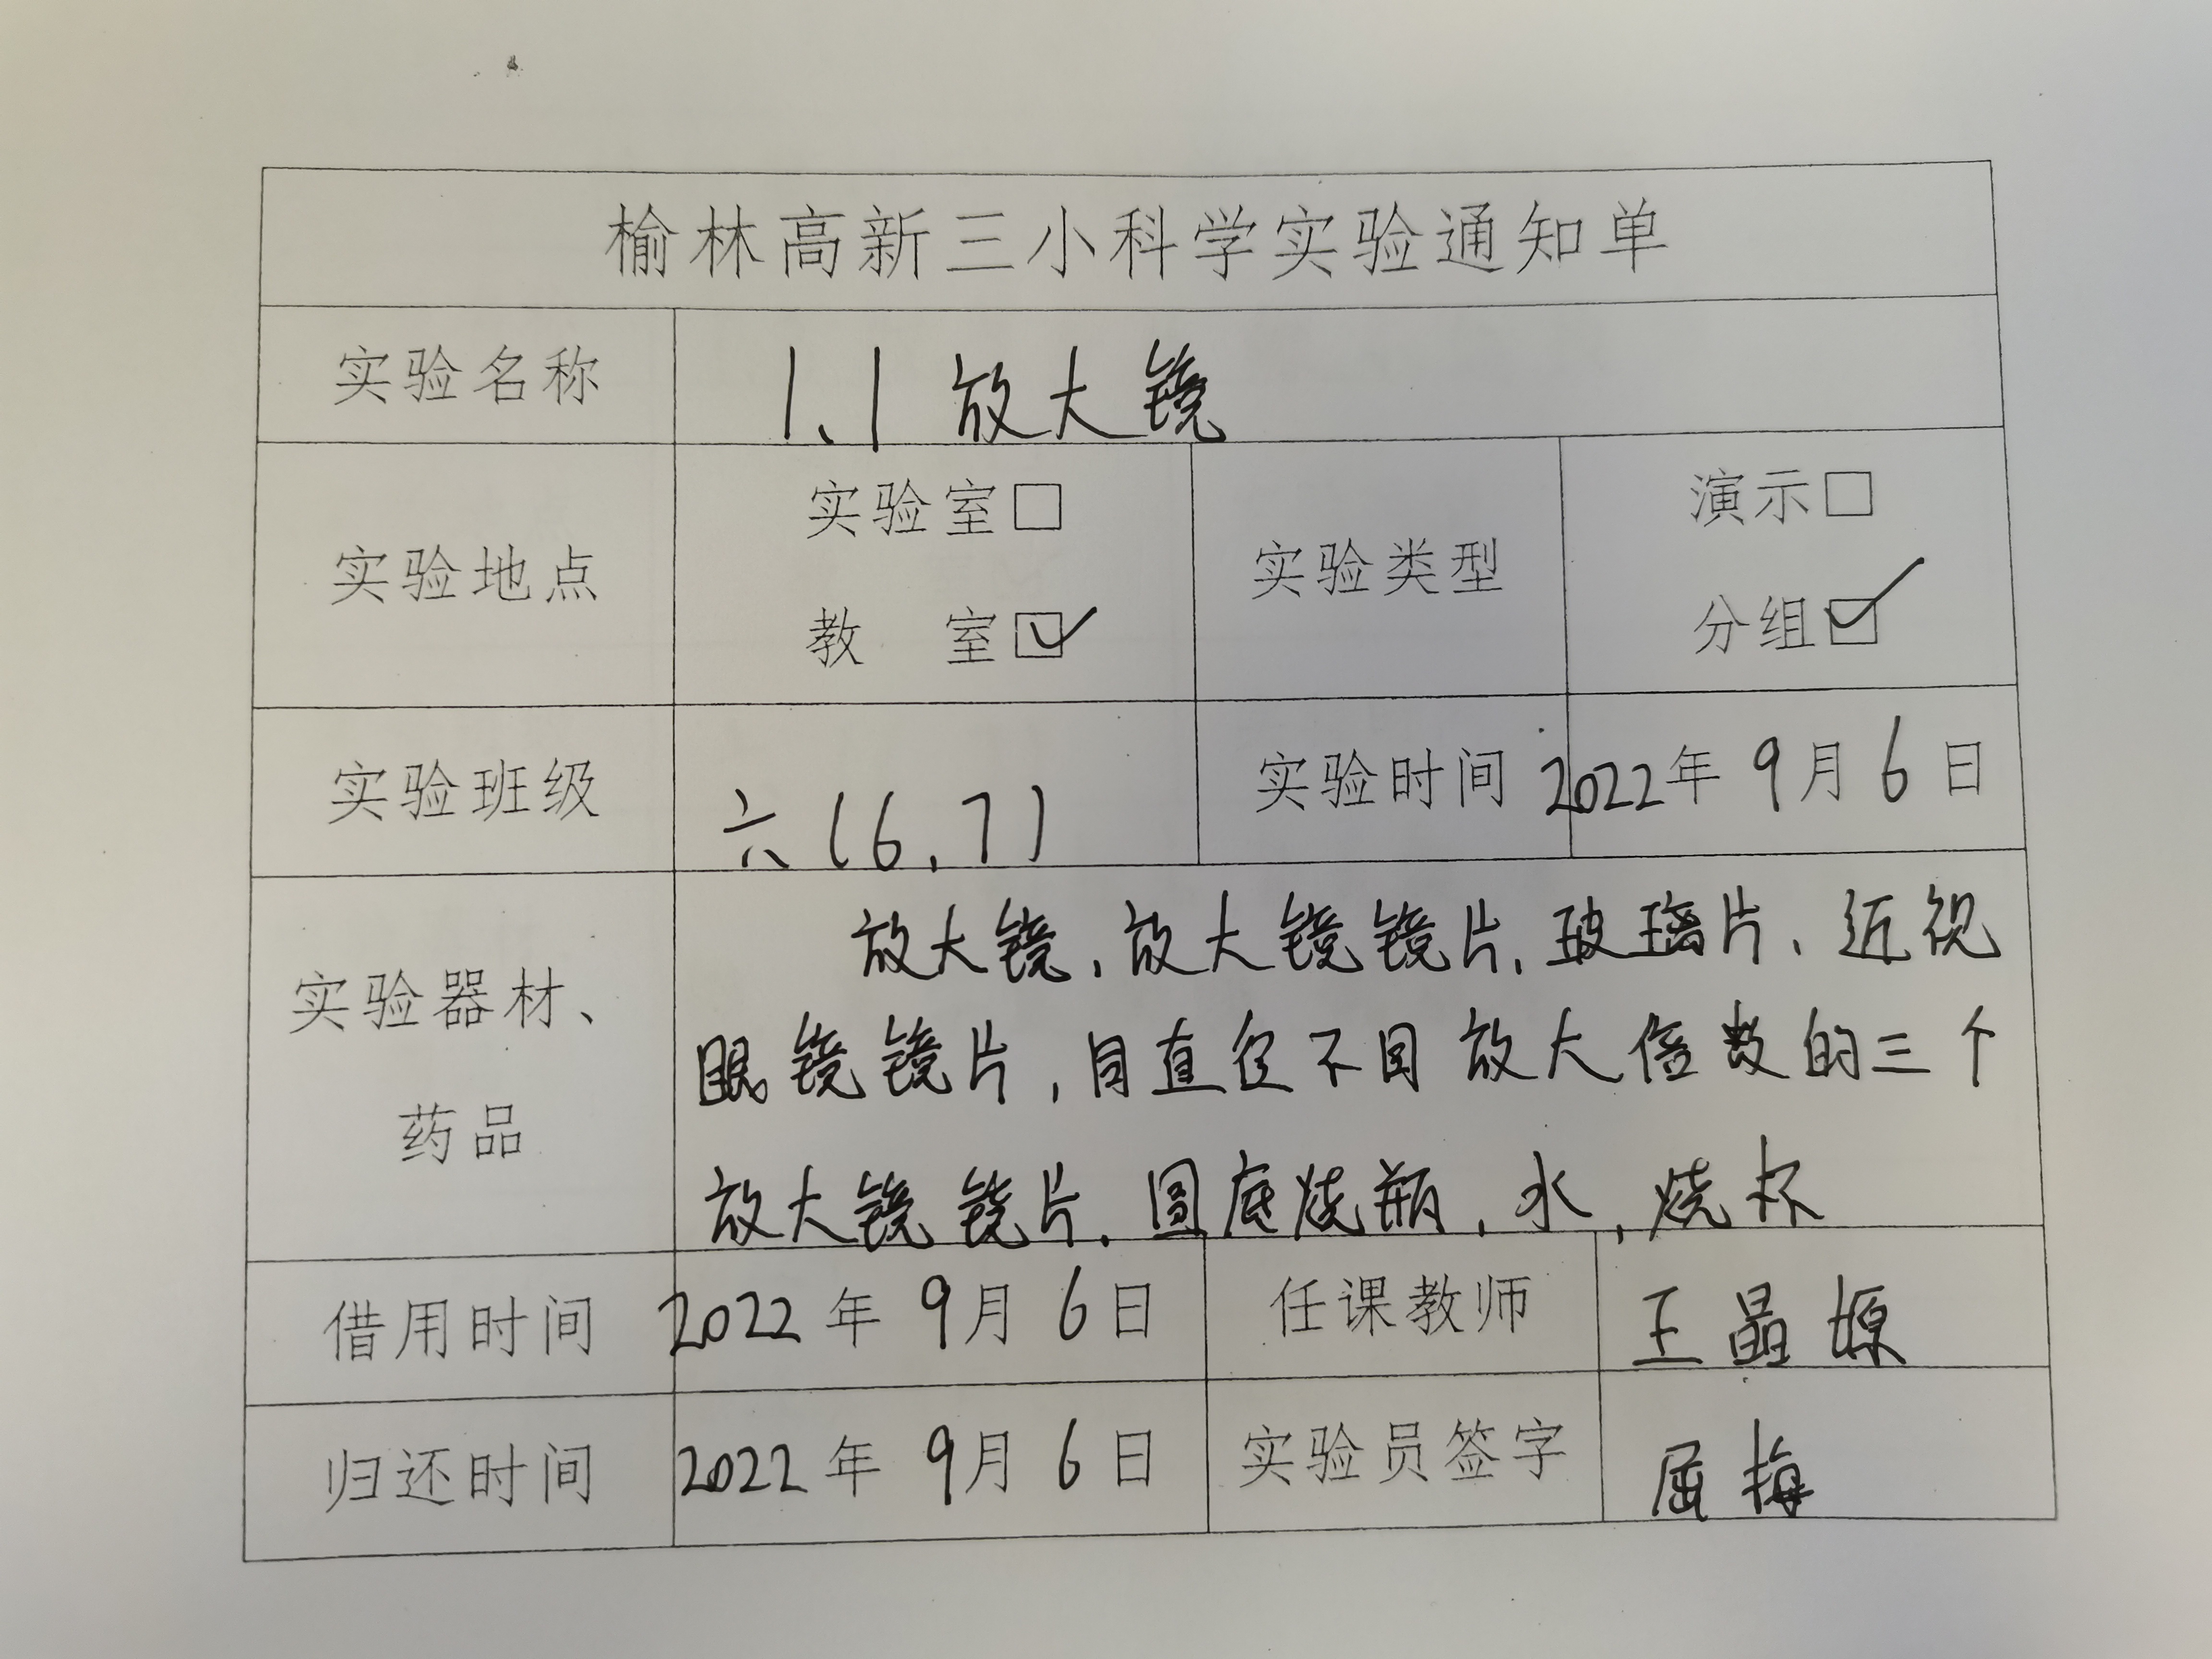 榆林高新三小科学实验通知单
实验名称 1、1 放大镜
实验室□ 演示□
实验地点 实验类型
教 室☑ 分组☑
实验班级 六(6、7) 实验时间 2022年9月6日
放大镜、放大镜镜片、玻璃片、近视
实验器材、
眼镜镜片、同直径不同放大倍数的三个
药品
放大镜镜片、圆底烧瓶、水、烧杯
借用时间 2022年9月6日 任课教师 王晶嫄
归还时间 2022年9月6日 实验员签字 屈梅